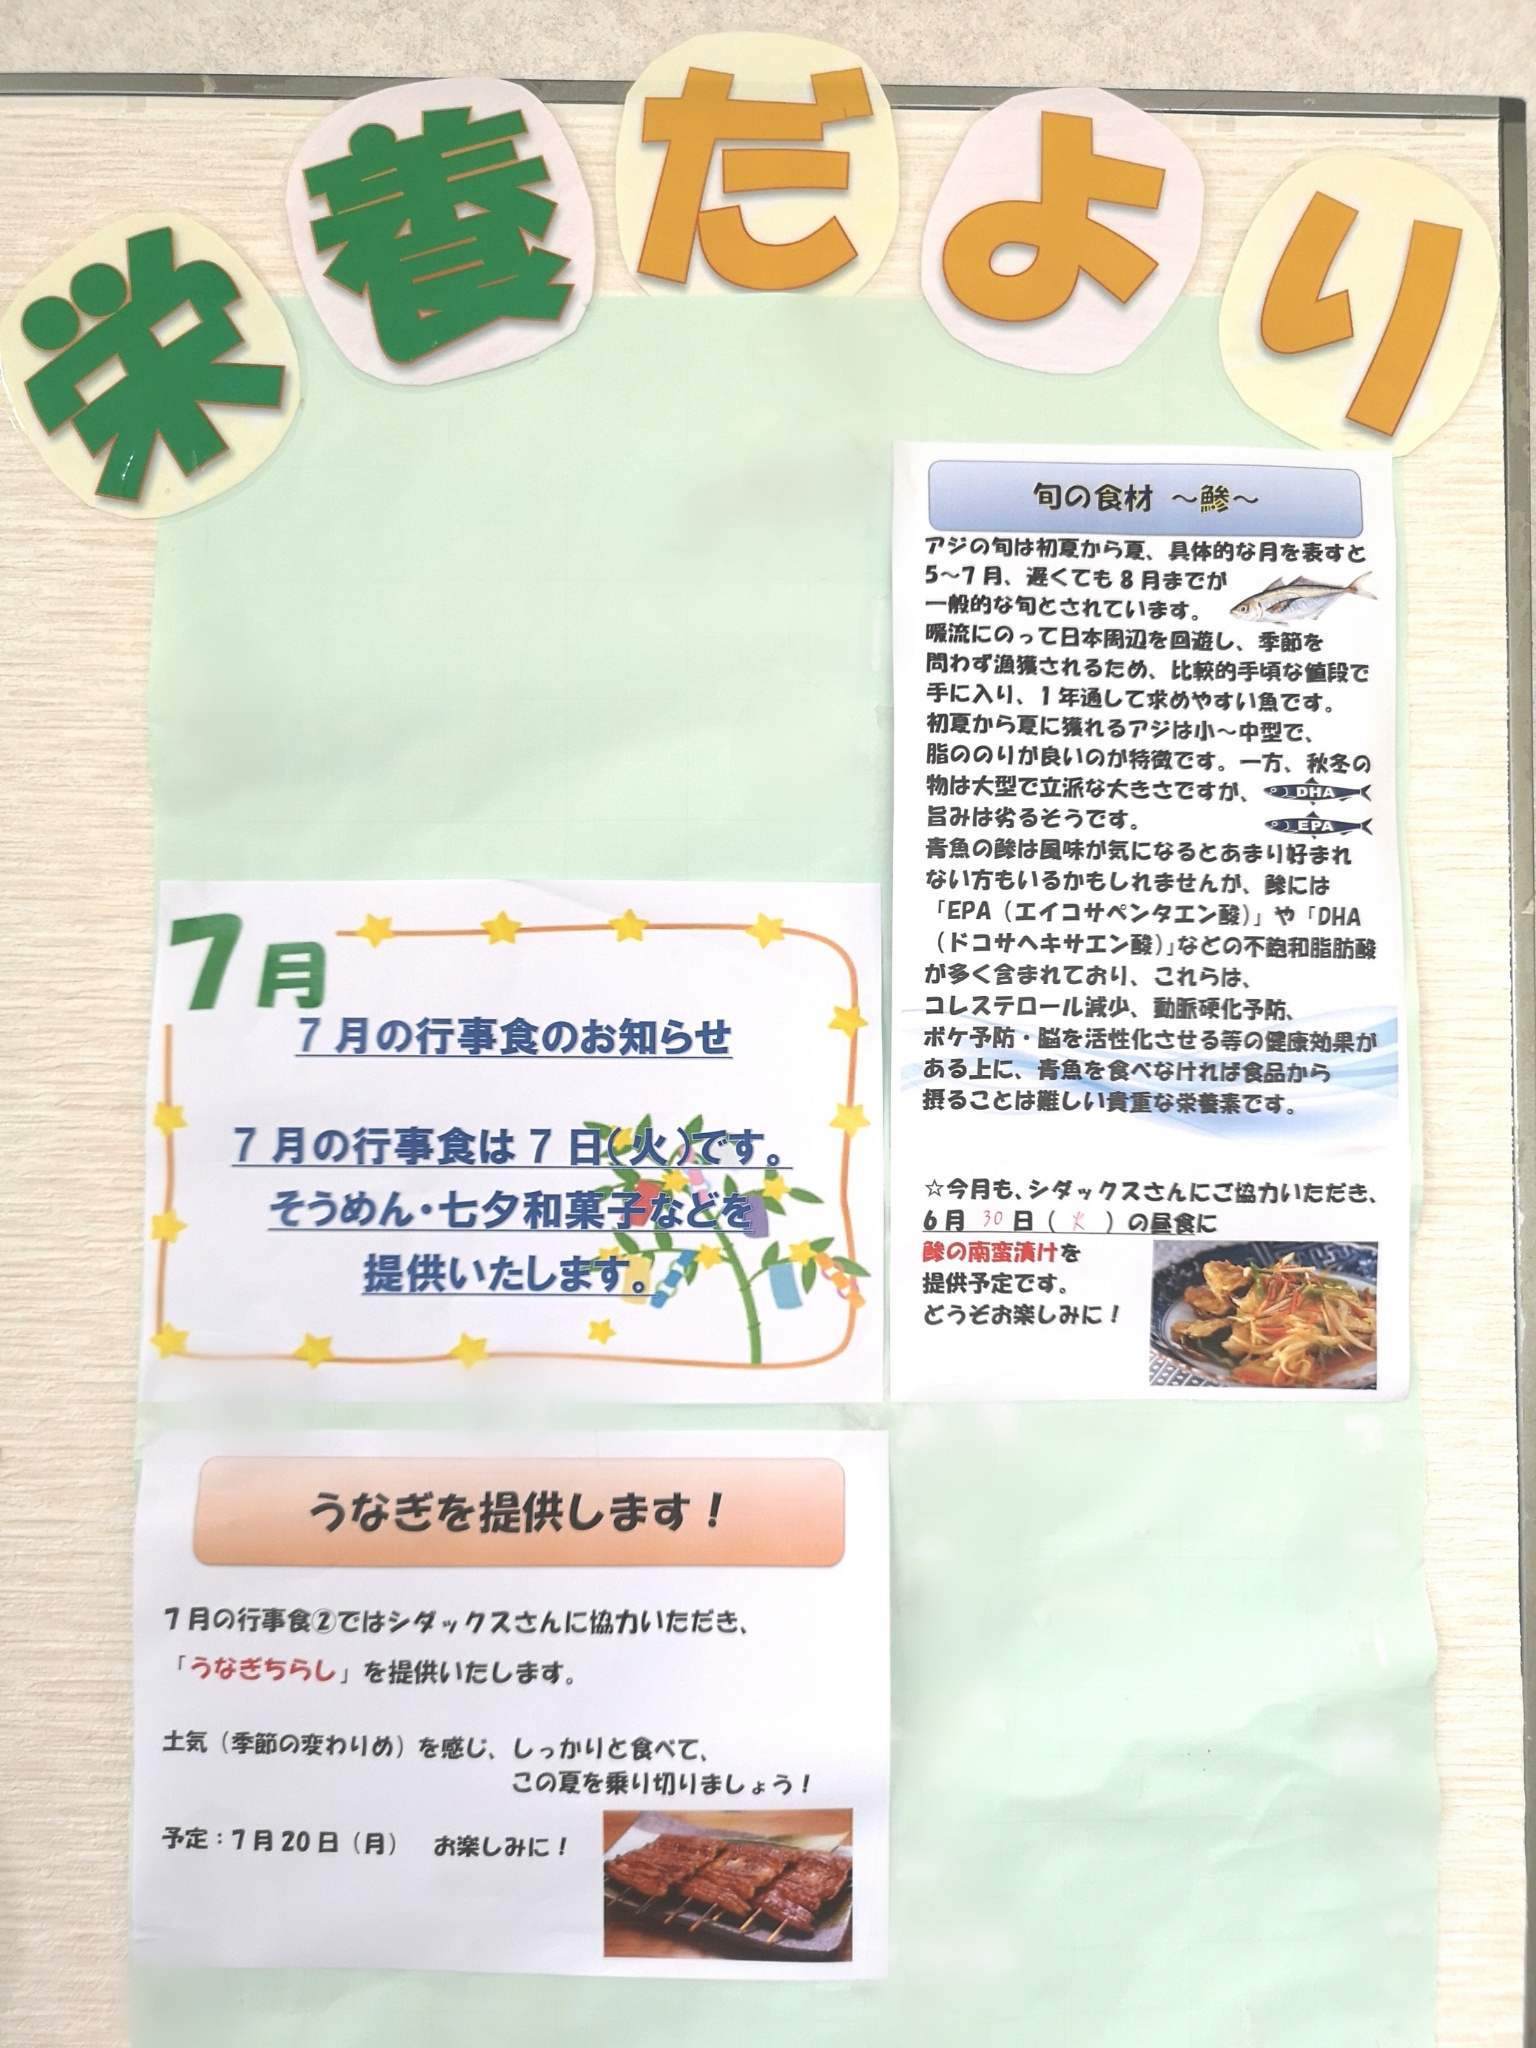 栄養だより
旬の食材 ～鯵～
アジの旬は初夏から夏、具体的な月を表すと
5～7月、遅くても8月までが
一般的な旬とされています。
暖流にのって日本周辺を回遊し、季節を
問わず漁獲されるため、比較的手頃な値段で
手に入り、1年通して求めやすい魚です。
初夏から夏に獲れるアジは小～中型で、
脂ののりが良いのが特徴です。一方、秋冬の
物は大型で立派な大きさですが、
DHA
旨みは劣るそうです。
EPA
青魚の鯵は風味が気になるとあまり好まれ
ない方もいるかもしれませんが、鯵には
「EPA（エイコサペンタエン酸）」や「DHA
（ドコサヘキサエン酸）」などの不飽和脂肪酸
が多く含まれており、これらは、
コレステロール減少、動脈硬化予防、
ボケ予防・脳を活性化させる等の健康効果が
ある上に、青魚を食べなければ食品から
摂ることは難しい貴重な栄養素です。
☆今月も、シダックスさんにご協力いただき、
6月 30 日（ 火 ）の昼食に
鯵の南蛮漬けを
提供予定です。
どうぞお楽しみに！
7月
7月の行事食のお知らせ
7月の行事食は7日（火）です。
そうめん・七夕和菓子などを
提供いたします。
うなぎを提供します！
7月の行事食②ではシダックスさんに協力いただき、
「うなぎちらし」を提供いたします。
土気（季節の変わりめ）を感じ、しっかりと食べて、
この夏を乗り切りましょう！
予定：7月20日（月） お楽しみに！